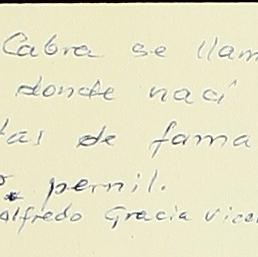 Cabra se llam
donde nací
tas de fama
pernil.
Alfredo Gracia Vice